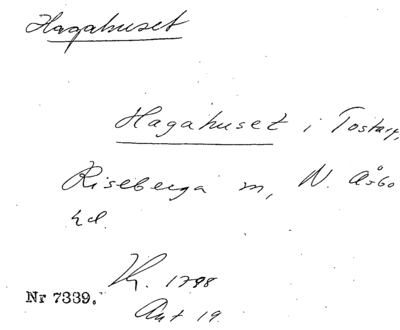 Hagahuset
Hagahuset i Tostarp,
Riseberga sn, N. Åsbo
hd.
Kr. 1798
Nr 7339.
Ant 19